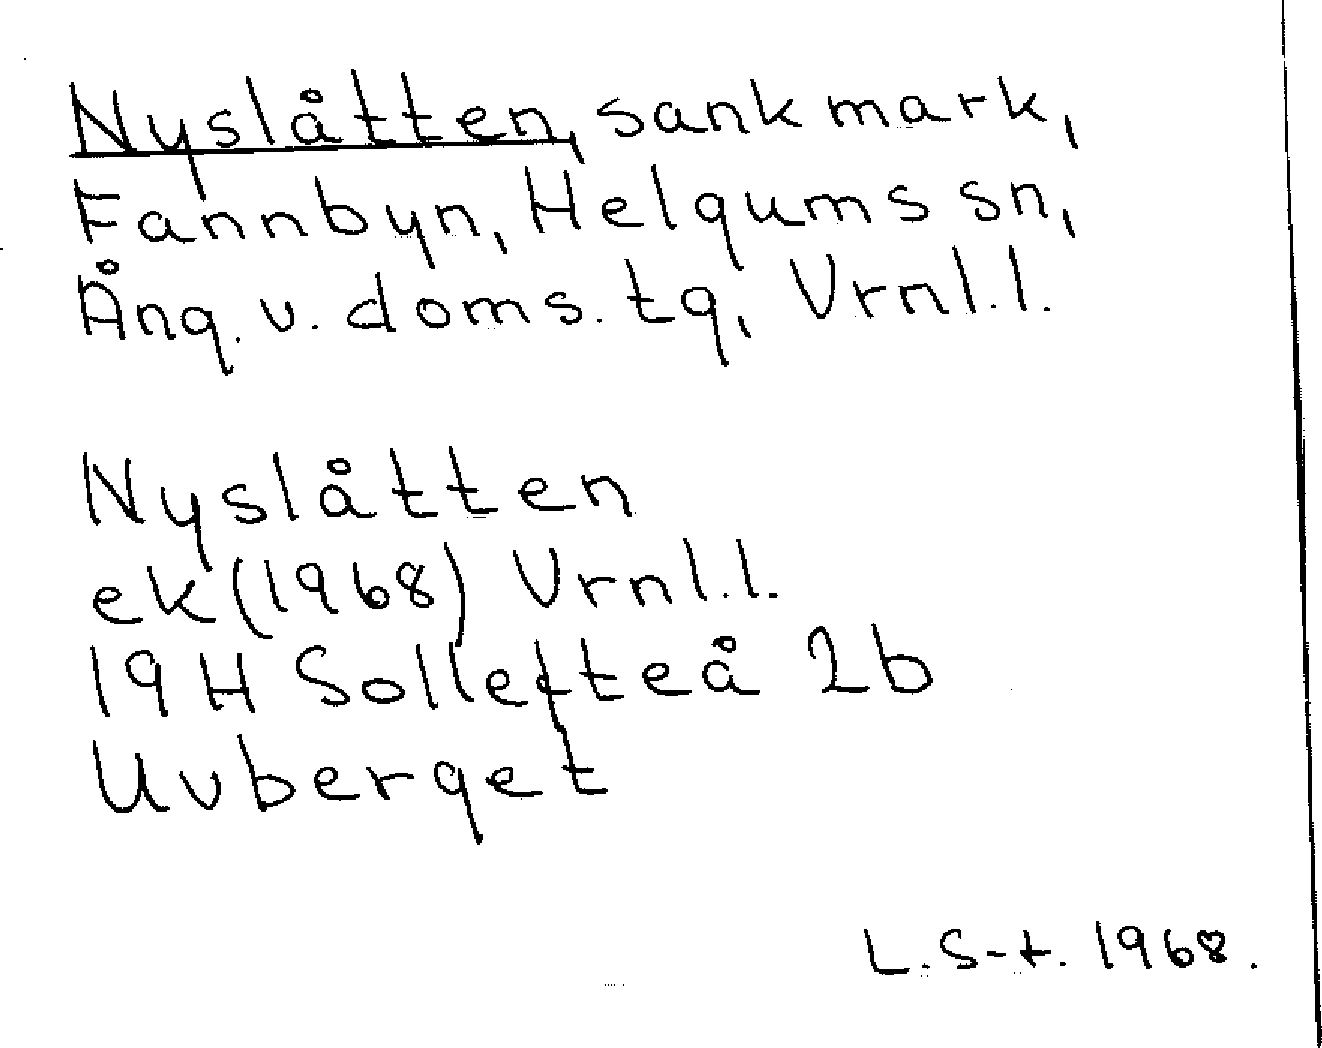 Nyslåtten, sank mark,
Fannbyn, Helgums sn,
Ång. v. doms. tg, Vrnl.l.
Nyslåtten
ek (1968) Vrnl.l.
19 H Sollefteå 2b
Uvberget
L. S-t. 1968.